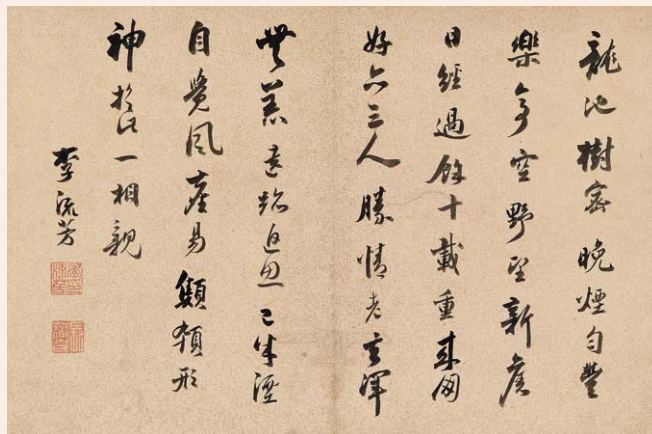 龍池樹密晚煙勻豐
樂亭空野望新舊
日經過餘十載重來同
好亦三人勝情老去渾
無恙遠跡追思已半湮
自覺風塵易顦顇形
神於此一相親
李流芳